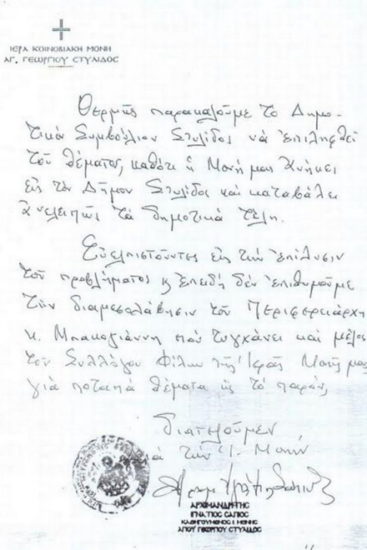 ΙΕΡΑ ΚΟΙΝΟΒΙΑΚΗ ΜΟΝΗ
ΑΓ. ΓΕΩΡΓΙΟΥ ΣΤΥΛΙΔΟΣ
Θερμῶς παρακαλοῦμε τὸ Δημο-
τικὸ Συμβούλιον Στυλίδος νὰ ἐπιληφθεῖ
τοῦ θέματος, καθότι ἡ Μονή μας ἀνήκει
εἰς τὸν Δῆμον Στυλίδος καὶ καταβάλει
ἀνελλειπῶς τὰ δημοτικὰ τέλη.
Εὐελπιστοῦντες εἰς τὴν ἐπίλυσιν
τοῦ προβλήματος κ ἐπειδὴ δὲν ἐπιθυμοῦμε
τὴν διαμεσολάβησιν τοῦ Περιφερειάρχη
κ. Μπακογιάννη ποὺ τυγχάνει καὶ μέλος
τοῦ Συλλόγου Φίλων τῆς Ἱερᾶς Μονῆς μας
γιὰ ποταπὰ θέματα ὡς τὸ παρόν,
Διατελοῦμεν
ιὰ τὴν Ἱ. Μονὴν
ΑΡΧΙΜΑΝΔΡΙΤΗΣ
ΙΓΝΑΤΙΟΣ ΣΑΠΙΟΣ
ΚΑΘΗΓΟΥΜΕΝΟΣ Ι. ΜΟΝΗΣ
ΑΓΙΟΥ ΓΕΩΡΓΙΟΥ ΣΤΥΛΙΔΟΣ